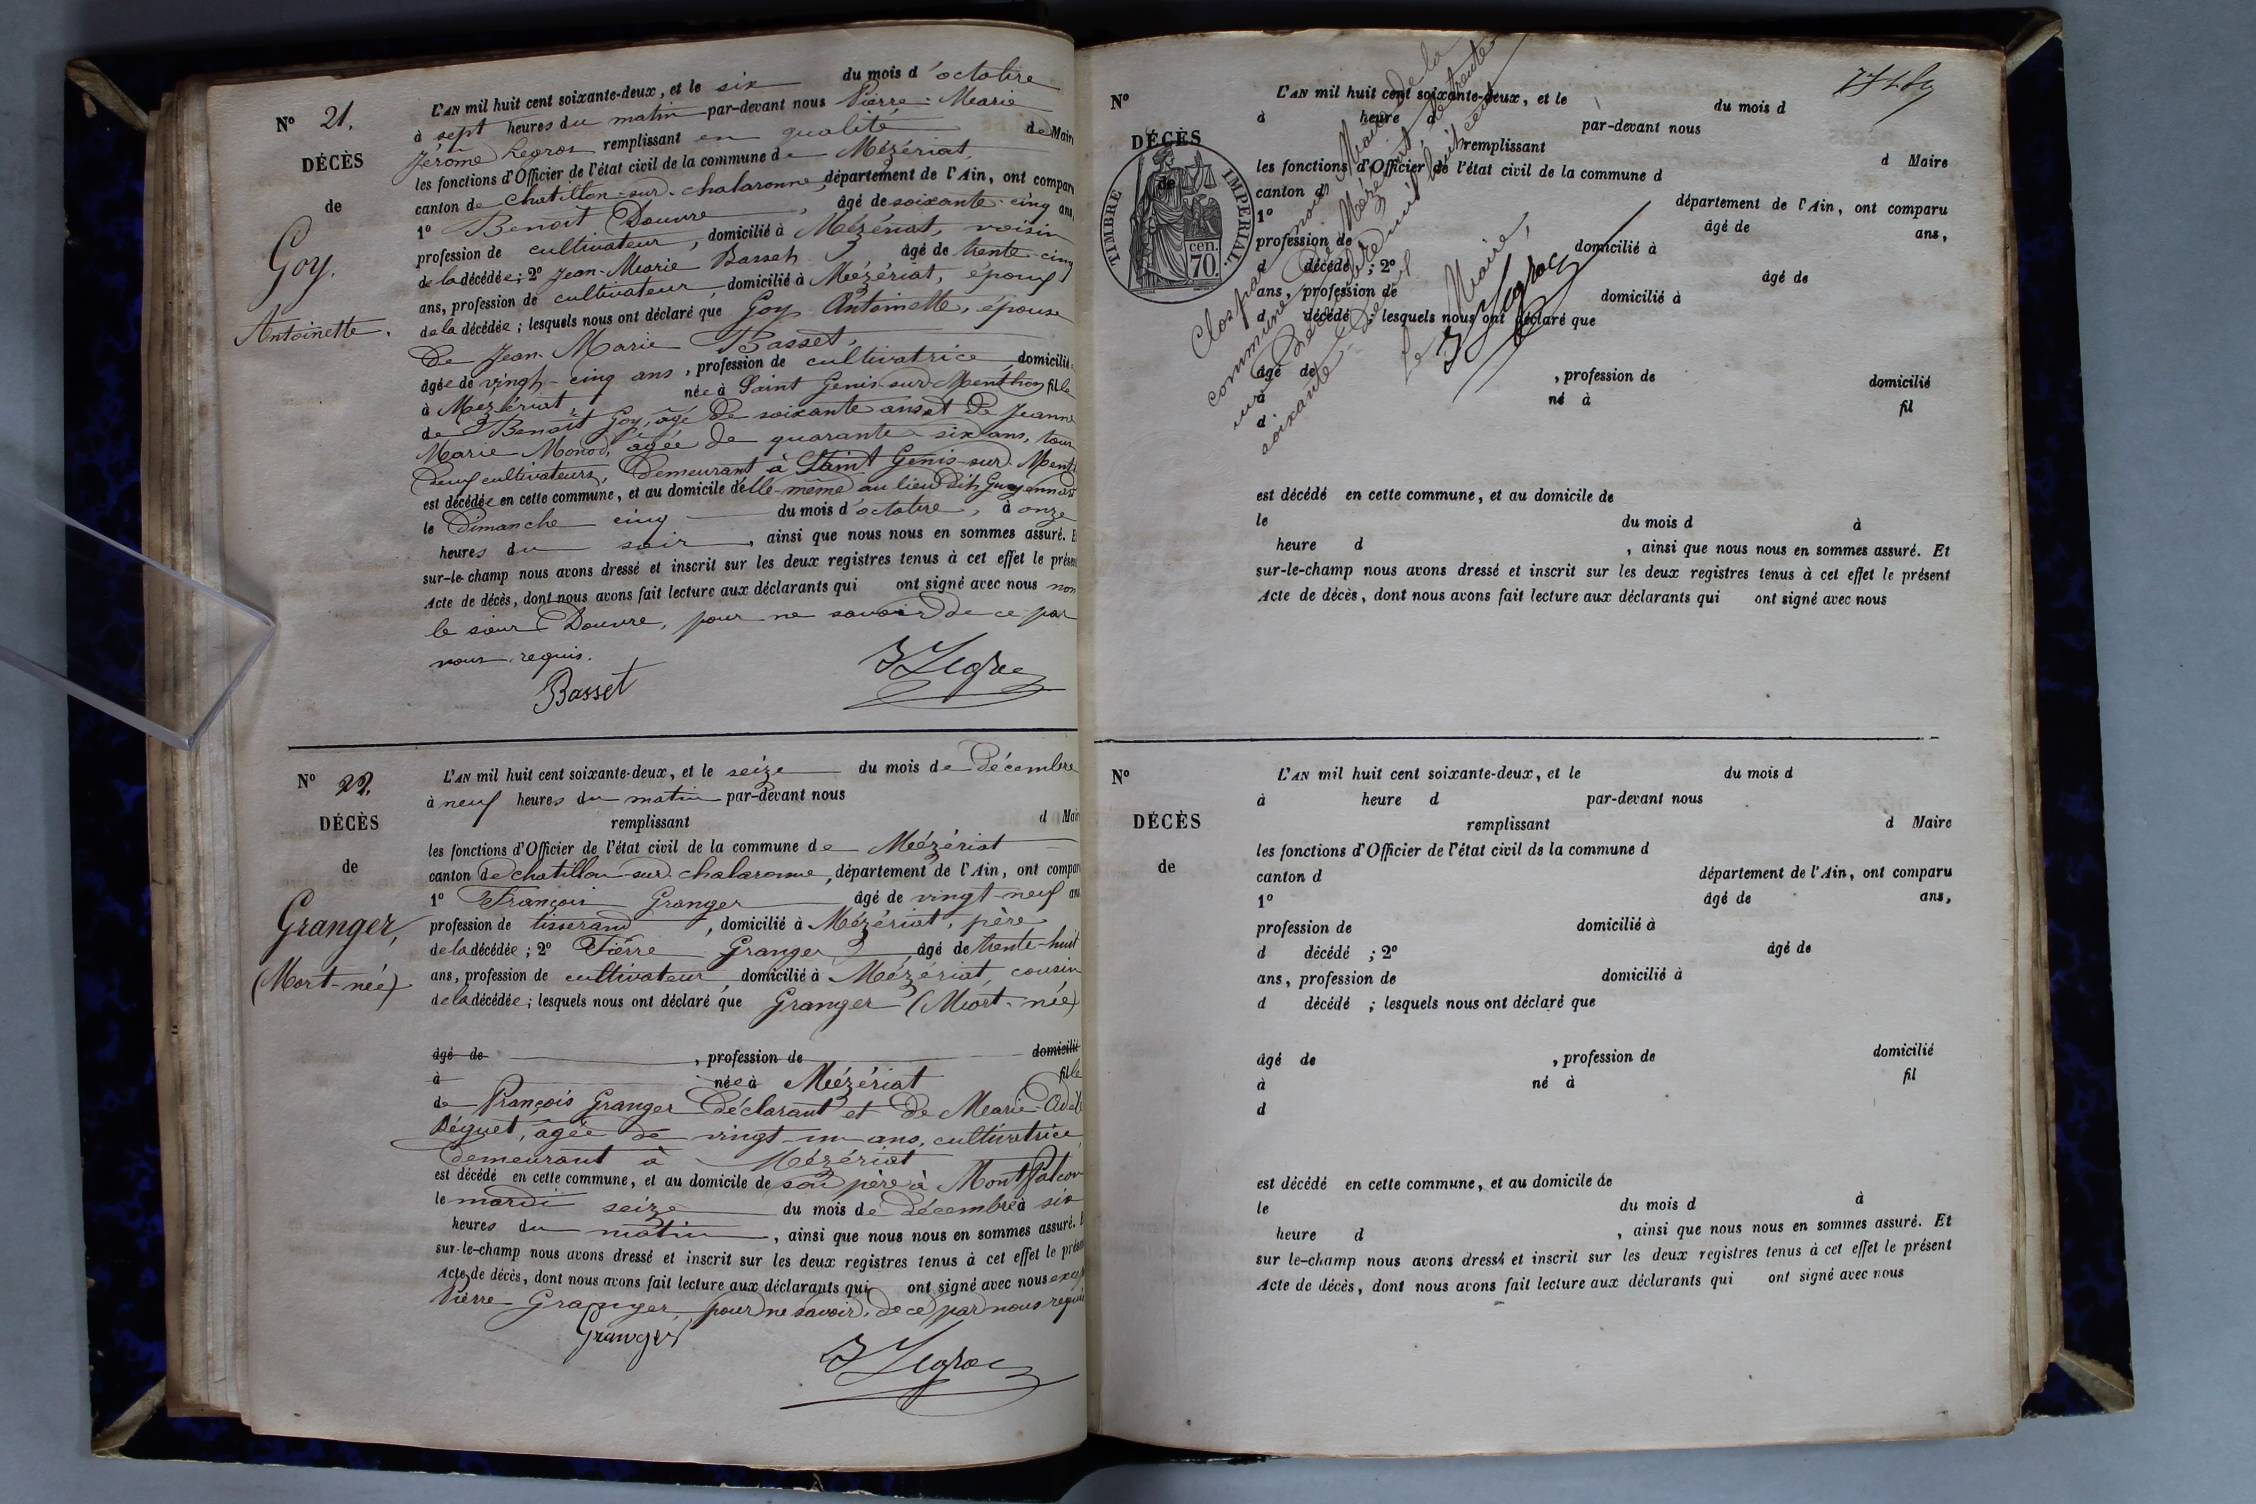 N° 21.
DÉCÈS
de
Goy.
Antoinette.
L'AN mil huit cent soixante-deux, et le six du mois d'octobre
à sept heures du matin par-devant nous Pierre-Marie
Jérôme Legros remplissant en qualité de Maire
les fonctions d'Officier de l'état civil de la commune de Mézériat,
canton de chatillon-sur-chalaronne, département de l'Ain, ont comparu
1° Benoit Douvre, âgé de soixante-cinq ans,
profession de cultivateur, domicilié à Mézériat, voisin
de la décédée; 2° Jean-Marie Basset, âgé de trente-cinq
ans, profession de cultivateur, domicilié à Mézériat, époux
de la décédée; lesquels nous ont déclaré que Goy Antoinette, épouse
de Jean-Marie Basset,
âgée de vingt-cinq ans, profession de cultivatrice, domiciliée
à Mézériat, née à Saint Genis-sur-Menthon fille
de Benoît Goy, âgé de soixante ans et de Jeanne
Marie Monod, âgée de quarante-six ans, tous
deux cultivateurs, demeurant à Saint Genis-sur-Menth
est décédée en cette commune, et au domicile d'elle-même au lieu dit
le Dimanche cinq du mois d'octobre, à onze
heures du soir, ainsi que nous nous en sommes assuré. E
sur-le-champ nous avons dressé et inscrit sur les deux registres tenus à cet effet le présent
Acte de décès, dont nous avons fait lecture aux déclarants qui ont signé avec nous non
le sieur Douvre, pour ne savoir de ce par
nous requis.
Basset JLegros
N° 22.
DÉCÈS
de
Granger,
(Mort-née)
L'AN mil huit cent soixante-deux, et le seize du mois de Décembre
à neuf heures du matin par-devant nous
remplissant d Maire
les fonctions d'Officier de l'état civil de la commune de Mézériat
canton de chatillon-sur-chalaronne, département de l'Ain, ont comparu
1° François Granger âgé de vingt-neuf ans
profession de tisserand, domicilié à Mézériat, père
de la décédée; 2° Pierre Granger âgé de trente-huit
ans, profession de cultivateur domicilié à Mézériat cousin
de la décédée; lesquels nous ont déclaré que Granger (Mort-née)
âgé de , profession de domicilié
à née à Mézériat fille
de François Granger Déclarant et de Marie Adèle
Béguet, âgée de vingt-un ans, cultivatrice,
demeurant à Mézériat
est décédé en cette commune, et au domicile de son père à Montfalcon
le mardi seize du mois de décembre à six
heures du matin, ainsi que nous nous en sommes assuré. E
sur-le-champ nous avons dressé et inscrit sur les deux registres tenus à cet effet le présent
Acte de décès, dont nous avons fait lecture aux déclarants qui ont signé avec nous excepté
Pierre Granger pour ne savoir, de ce par nous requis
Granger JLegros
N°
DÉCÈS
de
TIMBRE IMPERIAL
70 cen.
L'AN mil huit cent soixante-deux, et le du mois d
à heure d par-devant nous
remplissant d Maire
les fonctions d'Officier de l'état civil de la commune d
canton d département de l'Ain, ont comparu
1° âgé de ans,
profession de domicilié à
d décédé ; 2° âgé de
ans, profession de domicilié à
d décédé ; lesquels nous ont déclaré que
âgé de , profession de domicilié
à né à fil
d
est décédé en cette commune, et au domicile de
le du mois d à
heure d , ainsi que nous nous en sommes assuré. Et
sur-le-champ nous avons dressé et inscrit sur les deux registres tenus à cet effet le présent
Acte de décès, dont nous avons fait lecture aux déclarants qui ont signé avec nous
Clos par nous Maire de la
commune de Mézériat le trente
un Décembre mil huit cent
soixante-Deux
Le Maire,
JLegros
N°
DÉCÈS
de
L'AN mil huit cent soixante-deux, et le du mois d
à heure d par-devant nous
remplissant d Maire
les fonctions d'Officier de l'état civil de la commune d
canton d département de l'Ain, ont comparu
1° âgé de ans,
profession de domicilié à
d décédé ; 2° âgé de
ans, profession de domicilié à
d décédé ; lesquels nous ont déclaré que
âgé de , profession de domicilié
à né à fil
d
est décédé en cette commune, et au domicile de
le du mois d à
heure d , ainsi que nous nous en sommes assuré. Et
sur le-champ nous avons dressé et inscrit sur les deux registres tenus à cet effet le présent
Acte de décès, dont nous avons fait lecture aux déclarants qui ont signé avec nous